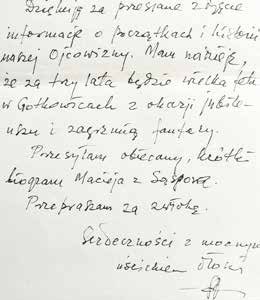 Dziękuję za przesłane zdjęcie
informacje o początkach i historii
naszej Ojcowizny. Mam nadzieję,
że za trzy lata będzie wielka feta
w Gotkowicach z okazji jubile-
uszu i zagrzmią fanfary.
Przesyłam obiecany, krótki
biogram Macieja z Sąspowa.
Przepraszam za zwłokę.
Serdeczności z mocnym
uściskiem dłoni